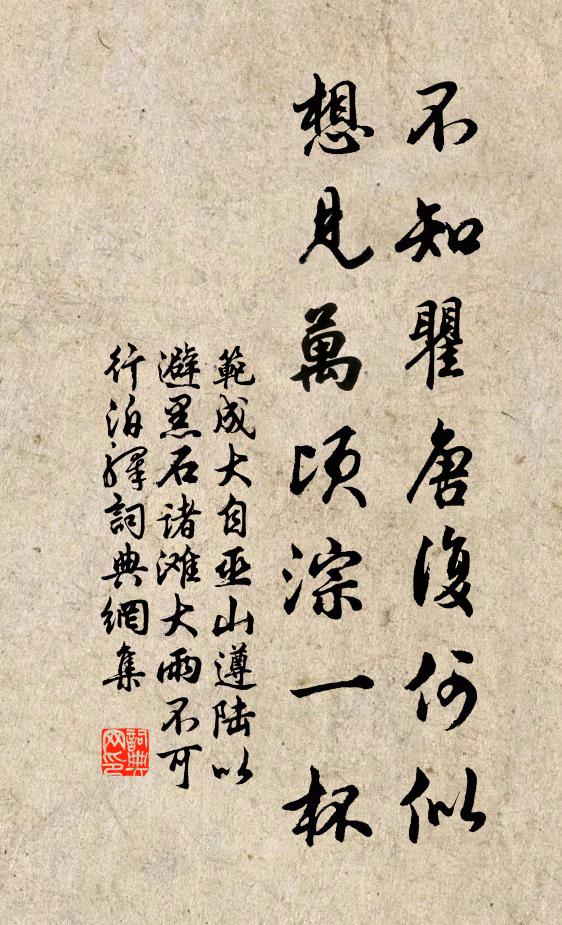 不知瞿唐復何似
想見萬頃淙一杯
範成大自巫山遵陸以
避黑石诸滩大雨不可
行泊驛詞典網集
詞典
网